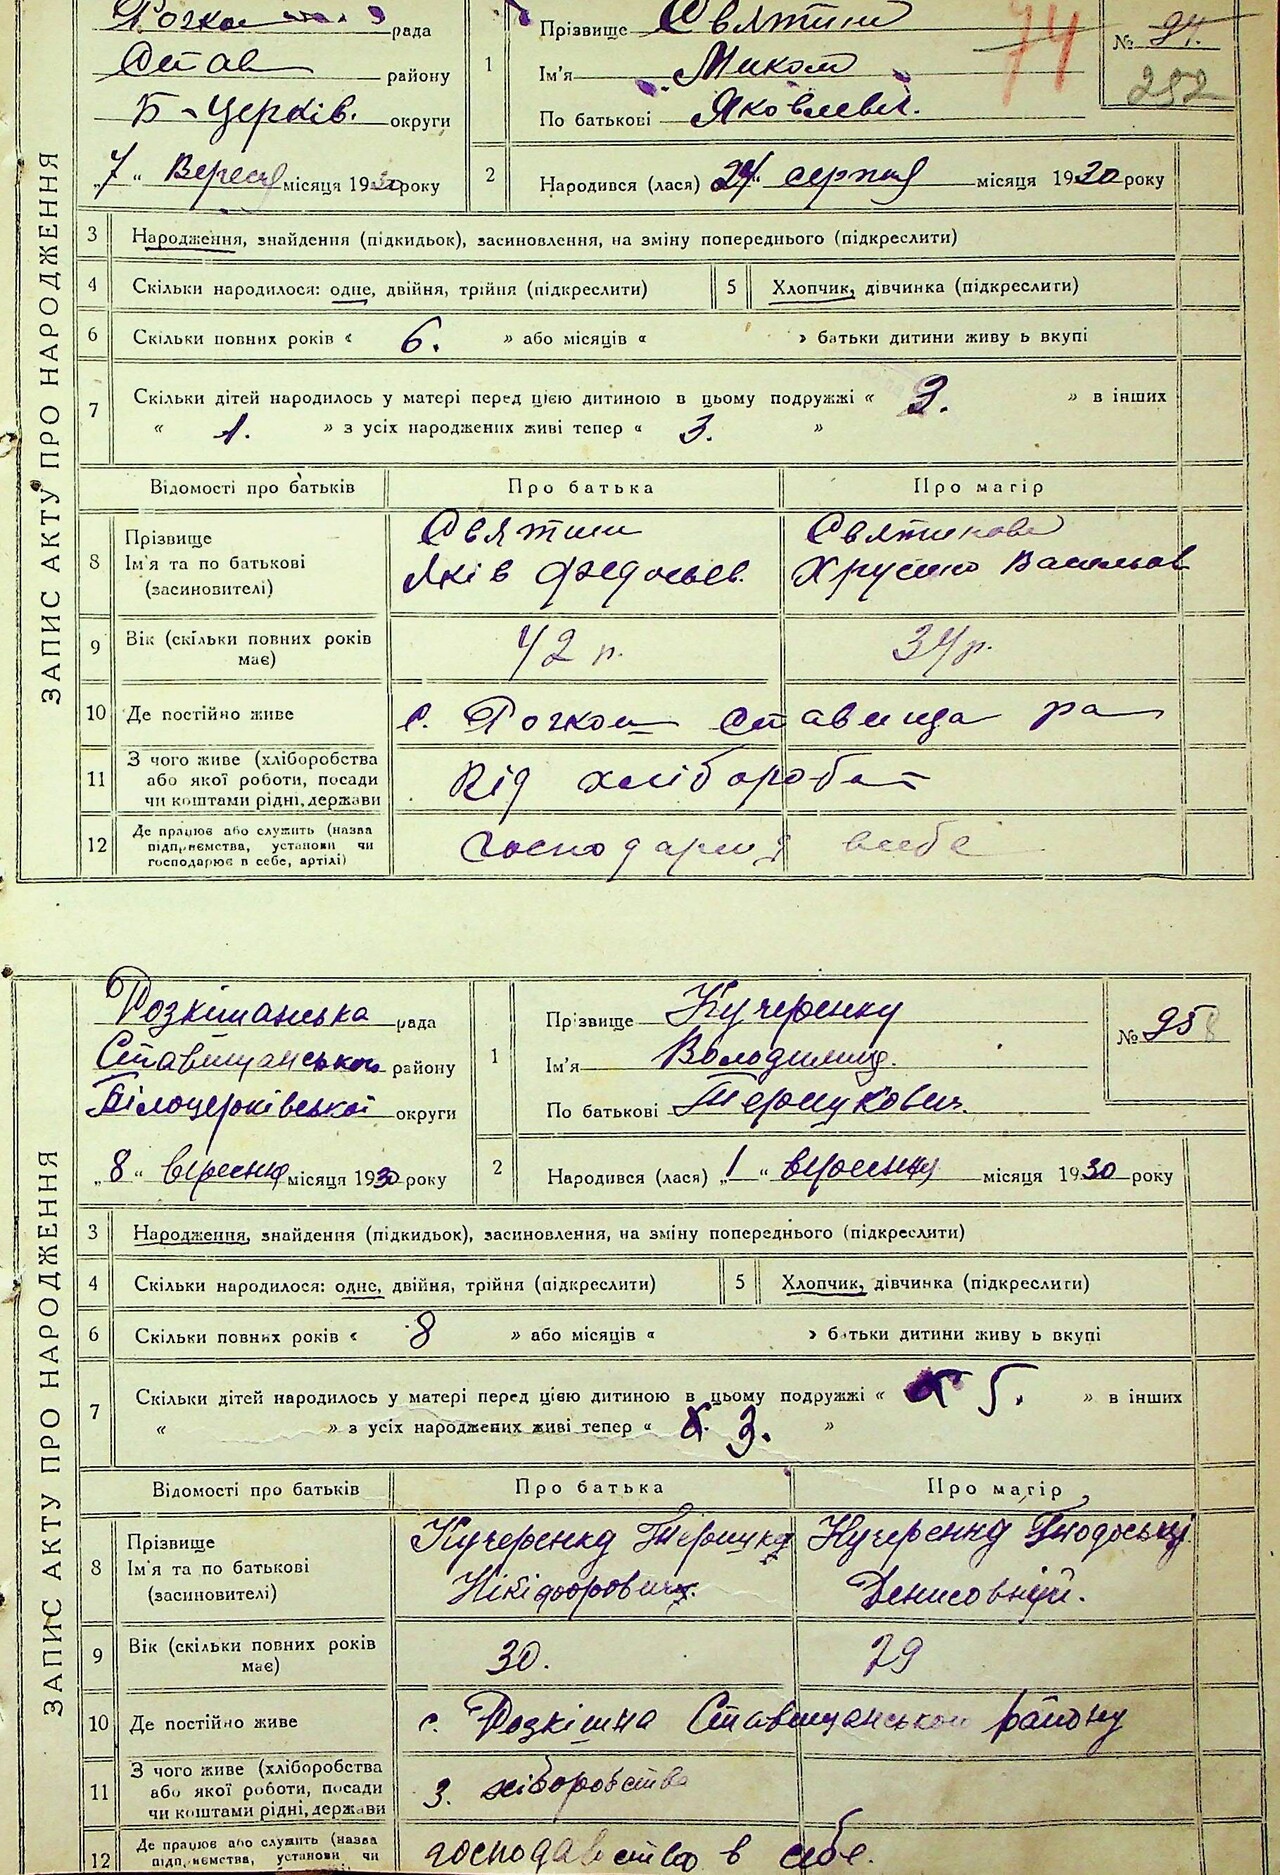 рада
Став району
Б-Церків. округи
„7" Вересня місяця 1930 року
1
Прізвище Святин
Ім'я Микола
По батькові Яковлевич.
№ 94.
252
74
2
Народився (лася) „24" серпня місяця 1930 року
ЗАПИС АКТУ ПРО НАРОДЖЕННЯ
3 Народження, знайдення (підкидьок), засиновлення, на зміну попереднього (підкреслити)
4 Скільки народилося: одне, двійня, трійня (підкреслити) 5 Хлопчик, дівчинка (підкреслити)
6 Скільки повних років « 6. » або місяців « » батьки дитини живу ь вкупі
7 Скільки дітей народилось у матері перед цією дитиною в цьому подружжі « 3. » в інших
« 1. » з усіх народжених живі тепер « 3. »
Відомості про батьків Про батька Про матір
8 Прізвище
Ім'я та по батькові
(засиновителі)
Святин
Яків Федосьев.
Святинова
Васильов
9 Вік (скільки повних років
має)
42 р. 34 р.
10 Де постійно живе с. Ставища ра
11 З чого живе (хліборобства
або якої роботи, посади
чи коштами рідні, держави
Від хлібороб
12 Де працює або служить (назва
підприємства, установи чи
господарює в себе, артілі)
всебе
Розкішанська рада
Ставищанського району
Білоцерківської округи
„8" вересня місяця 1930 року
1
Прізвище Кучеренку
Ім'я Володимир.
По батькові
№ 95
2
Народився (лася) „1" вересня місяця 1930 року
ЗАПИС АКТУ ПРО НАРОДЖЕННЯ
3 Народження, знайдення (підкидьок), засиновлення, на зміну попереднього (підкреслити)
4 Скільки народилося: одне, двійня, трійня (підкреслити) 5 Хлопчик, дівчинка (підкреслити)
6 Скільки повних років « 8 » або місяців « » батьки дитини живу ь вкупі
7 Скільки дітей народилось у матері перед цією дитиною в цьому подружжі « 5. » в інших
« » з усіх народжених живі тепер « 3. »
Відомості про батьків Про батька Про матір
8 Прізвище
Ім'я та по батькові
(засиновителі)
Кучеренко
Нікіфорович.
Кучеренко
Денисовній.
9 Вік (скільки повних років
має)
30. 29
10 Де постійно живе с. Розкішна Ставищанського району
11 З чого живе (хліборобства
або якої роботи, посади
чи коштами рідні, держави
З. хліборобства
12 Де працює або служить (назва
підприємства, установи чи
господарство в себе.